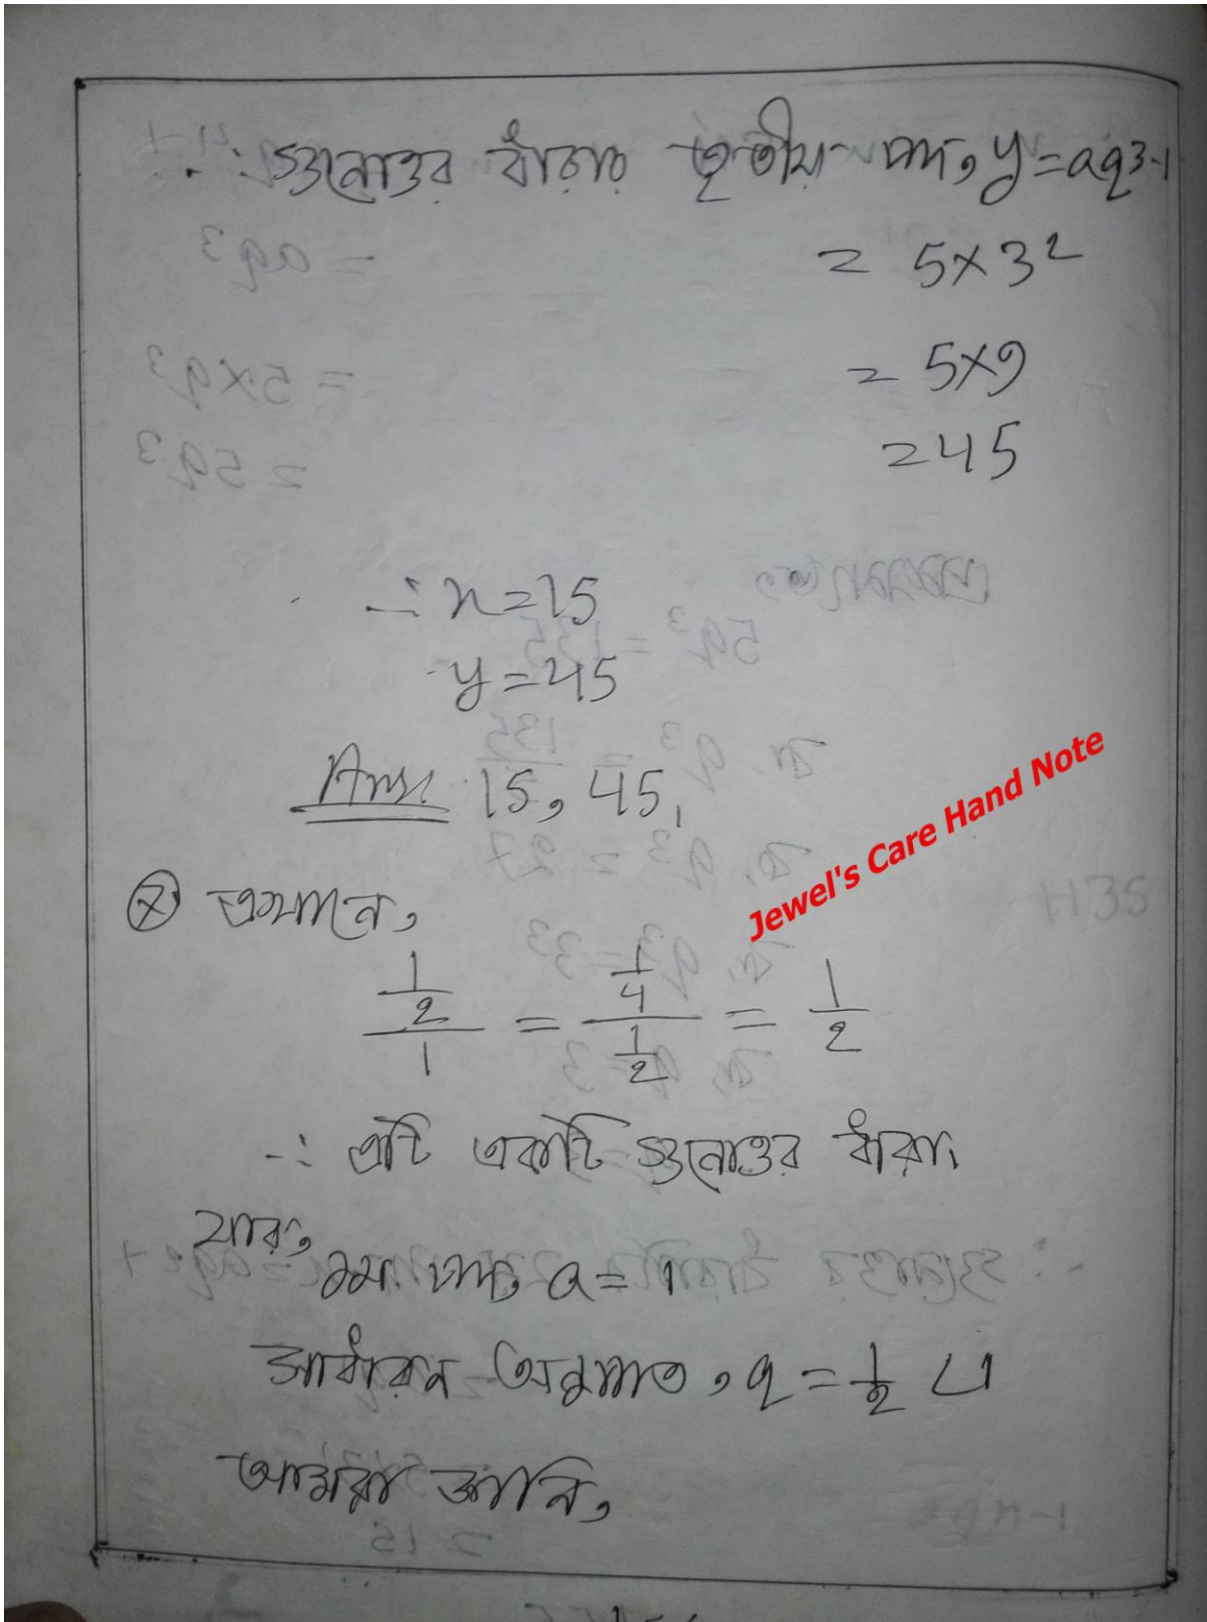 ∴ গুনোত্তর ধাঁরার তৃতীয় পদ, y = aq³⁻¹
= 5×3²
= 5×9
= 45
∴ x = 15
y = 45
Ans: 15, 45,
Jewel's Care Hand Note
এখানে,
(1/2)/1 = (1/4)/(1/2) = 1/2
∴ এটি একটি গুনোত্তর ধাঁরা।
যার,
১ম পদ, a = 1
সাধাঁরন অনুপাত, q = 1/2 < 1
আমরা জানি,